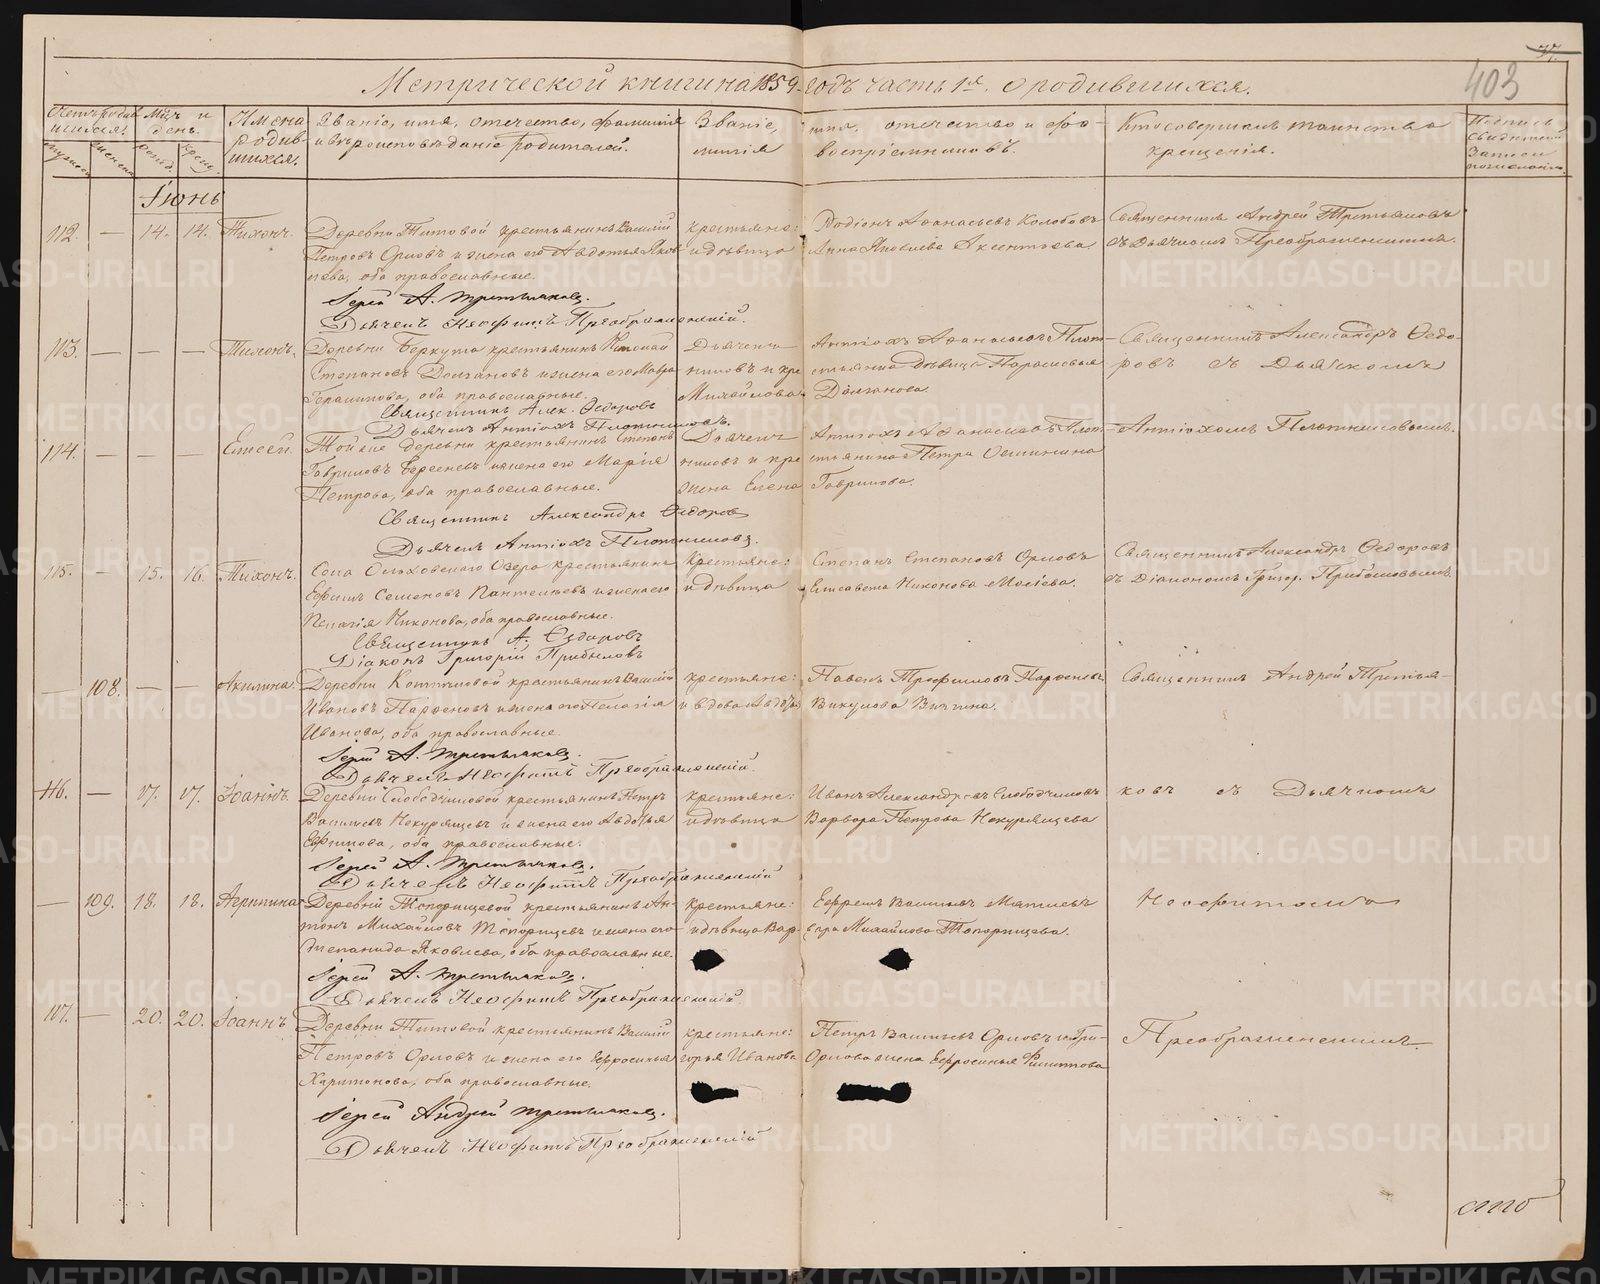 403
Метрической книги на 1859 годъ часть 1я. о родившихся.
Счетъ родившихся.
Мцъ и день.
Имена родившихся.
Званіе, имя, отечество, фамилія и вѣроисповѣданіе родителей.
Званіе, имя, отечество и фамилія воспріемниковъ.
Кто совершалъ таинство крещенія.
Іюнь
112. — 14. 14. Тихонъ.
Деревни Титовой крестьянинъ Василій
Петровъ Орловъ и жена его Авдотья Яковлева, оба православные.
крестьяне: Родіонъ Аѳанасьевъ Колобовъ
и дѣвица Анна Яковлева Аксентьева.
Священникъ Андрей Третьяковъ
съ Дьячкомъ Преображенскимъ.
Іерей А. Третьяковъ.
Дьячекъ Неофитъ Преображенскій.
113. — — —
Деревни Беркута крестьянинъ
Степановъ Долгановъ и жена его Мавра
Герасимова, оба православные.
Дьячекъ Антіохъ Аѳанасьевъ Плотниковъ и крестьянка дѣвица Парасковья
Михайлова Долганова.
Священникъ Александръ Ѳедоровъ съ Дьячкомъ
Священникъ Алек. Ѳедоровъ
Дьячекъ Антіохъ Плотниковъ.
114. — — — Елисей.
Той же деревни крестьянинъ Степанъ
Гавриловъ Берсеневъ и жена его Марія
Петрова, оба православные.
Дьячекъ Антіохъ Аѳанасьевъ Плотниковъ и крестьянина Петра
жена Елена Гаврилова.
Антіохомъ Плотниковымъ.
Священникъ Александръ Ѳедоровъ
Дьячекъ Антіохъ Плотниковъ.
115. — 15. 16. Тихонъ.
Села Ольховскаго Озера крестьянинъ
Ефимъ Семеновъ Пантелѣевъ и жена его
Пелагія Никонова, оба православные.
Крестьяне: Степанъ Степановъ Орловъ
и дѣвица Елисавета Никонова
Священникъ Александръ Ѳедоровъ
съ Діакономъ Григор. Прибыловымъ.
Священникъ А. Ѳедоровъ
Діаконъ Григорій Прибыловъ
— 108. — — Акилина.
Деревни крестьянинъ Василій
Ивановъ Парѳеновъ и жена его Пелагія
Иванова, оба православные.
крестьяне: Павелъ Трофимовъ Парѳеновъ
и вдова Авдотья Викулова
Священникъ Андрей Третья-
Іерей А. Третьяковъ.
Дьячекъ Неофитъ Преображенскій.
116. — 17. 17. Іоаннъ.
Деревни Слободчиковой крестьянинъ Петръ
Васильевъ Некурящевъ и жена его Авдотья
Ефимова, оба православные.
крестьяне: Иванъ Александровъ Слободчиковъ
и дѣвица Варвара Петрова Некурящева
ковъ съ Дьячкомъ
Іерей А. Третьяковъ.
Дьячекъ Неофитъ Преображенскій
— 109. 18. 18. Агрипина
Деревни Топорищевой крестьянинъ Антонъ Михайловъ Топорищевъ и жена его
Степанида Яковлева, оба православные.
крестьяне: Ефремъ Васильевъ
и дѣвица Варвара Михайлова Топорищева.
Неофитомъ
Іерей А. Третьяковъ.
Дьячекъ Неофитъ Преображенскій
117. — 20. 20. Іоаннъ
Деревни Титовой крестьянинъ Василій
Петровъ Орловъ и жена его Ефросинья
Харитонова, оба православные.
крестьяне: Петръ Васильевъ Орловъ и Григорья Иванова
Орлова жена Ефросинья Филиппова
Преображенскимъ.
Іерей Андрей Третьяковъ.
Дьячекъ Неофитъ Преображенскій
METRIKI.GASO-URAL.RU